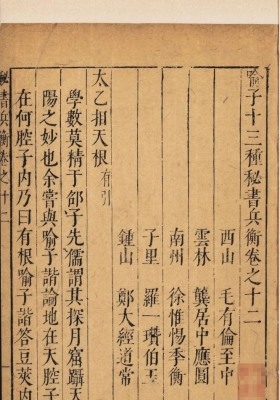 喻子十三種秘書兵衡卷之十二
西山　毛有倫至中
雲林　龔居中應圓
南州　徐惟惕季衡
子里　羅一瓚伯玉
鍾山　鄭大經道常
太乙拍天根有引
學數莫精于邵子先儒謂其探月窟躡天
陽之妙也余嘗與喻子諧論地在天腔子
在何腔子内乃曰有根喻子諧答豆莢内
秘書兵衡卷之十二